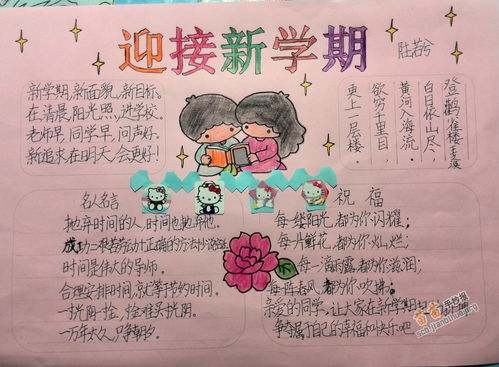 迎接新学期
陆若兮
新学期,新面貌,新目标。
在清晨,阳光照,进学校。
老师早,同学早,问声好。
新追求,在明天,会更好!
登鹳雀楼 王之涣
白日依山尽,
黄河入海流。
欲穷千里目,
更上一层楼。
名人名言
抛弃时间的人,时间也抛弃他。
成功=艰苦劳动+正确的方法+少说空话
时间是伟大的导师。
合理安排时间,就等于节约时间。
一万年太久,只争朝夕。
祝福
每一缕阳光,都为你闪耀;
每一片鲜花,都为你灿烂;
每一滴雨露,都为你滋润;
每一阵春风,都为你吹拂;
亲爱的同学,让大家在新学期
属于自己的幸福和快乐吧